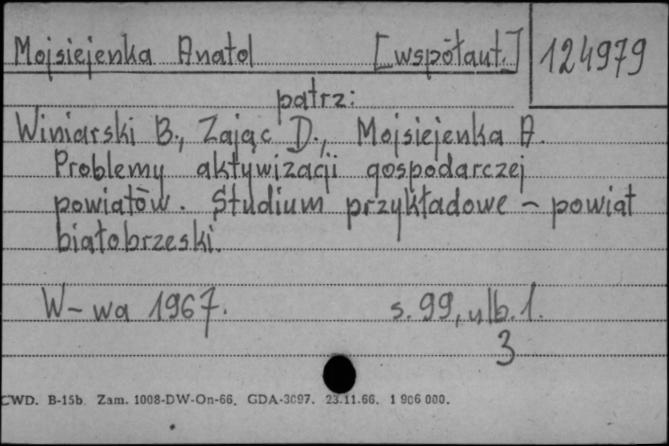 Mojsiejenka Anatol [współaut.] 124979
patrz:
Winiarski B., Zając D., Mojsiejenka A.
Problemy aktywizacji gospodarczej
powiatów. Studium przykładowe - powiat
białobrzeski.
W-wa 1967. s. 99, ulb. 1.
3
CWD. B-15b. Zam. 1008-DW-On-66. GDA-3097. 23.11.66. 1 906 000.